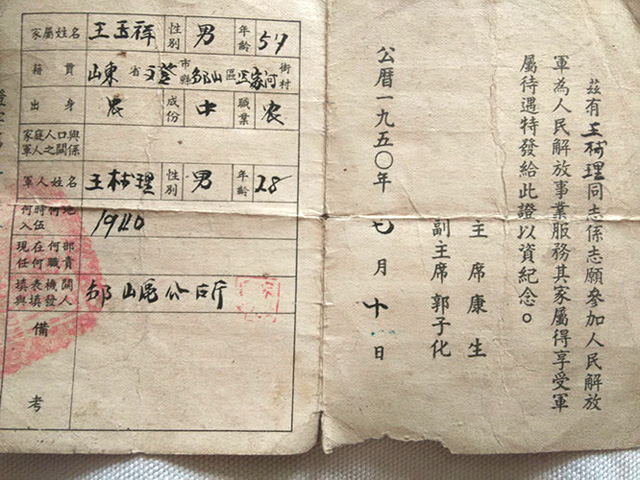 茲有王樹理同志係志願參加人民解放
軍為人民解放事業服務其家屬得享受軍
屬待遇特發給此證以資紀念。
主席康生
副主席郭子化
公曆一九五〇年七月十日
家屬姓名 王玉祥 性別 男 年齡 57
籍貫 山東省文登市縣 山區 家河街村
出身 農 成份 中 職業 农
家庭人口與軍人之關係
軍人姓名 王树理 性別 男 年齡 28
何時何地入伍 1940
現在何部任何職責
填表機關與填發人 山區公所
備考